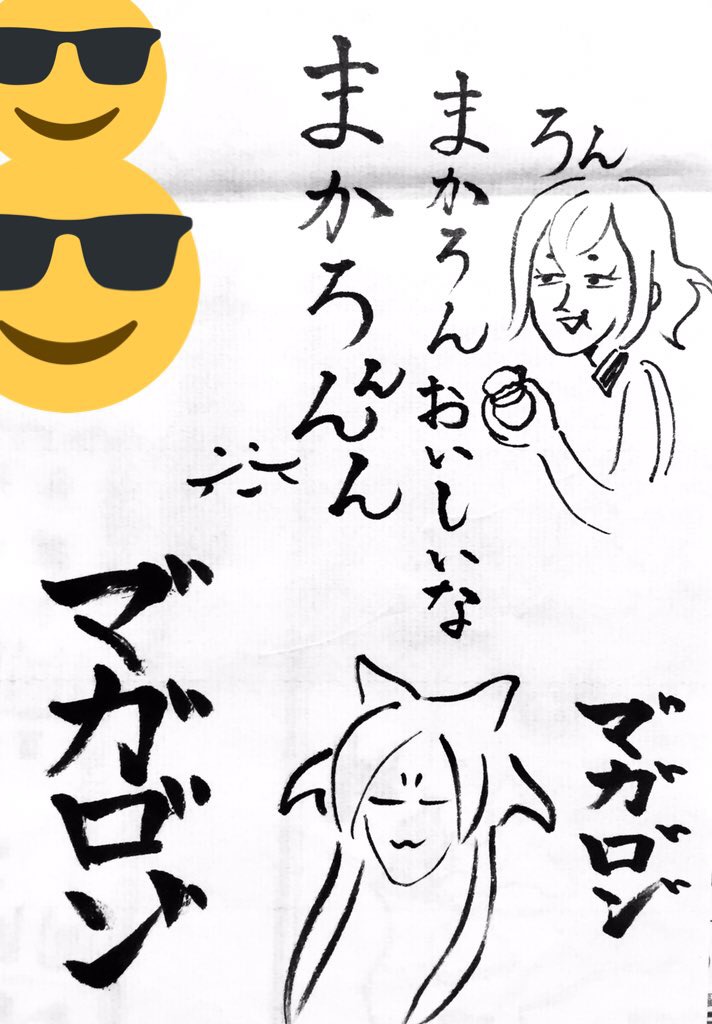 ろん
まかろんおいしいな
まかろんんん
マ゛ガロ゛ン゛
マ゛ガロ゛ン゛